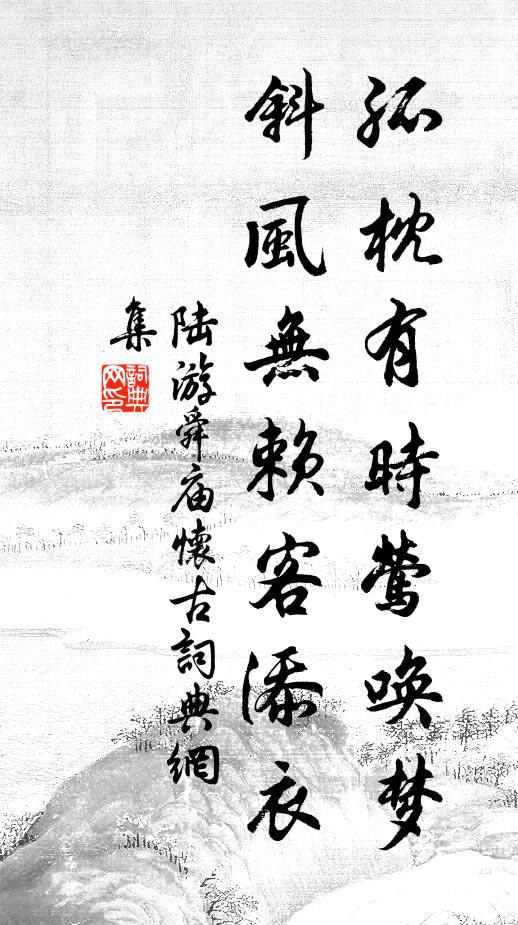 孤枕有時鶯唤梦
斜風無賴客添衣
陆游舜庙懷古詞典網
集
詞典
网印